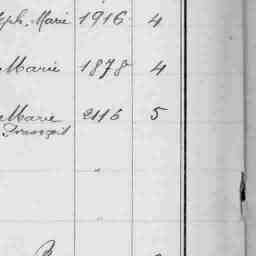 ph. Marie 1916 4
Marie 1878 4
Marie 2116 5
"
"